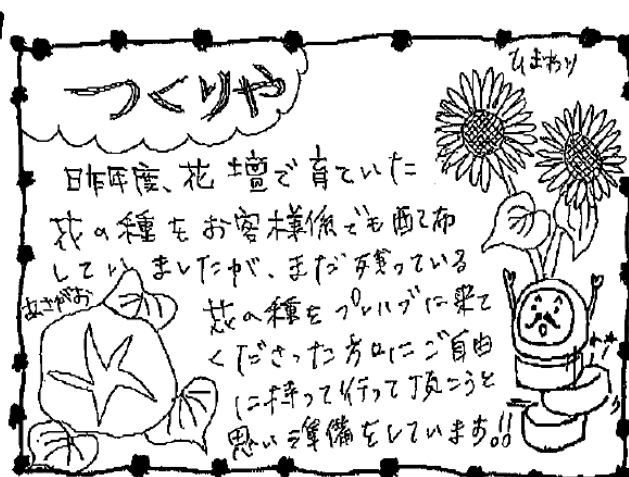 つくりや
ひまわり
昨年度、花壇で育ていた
花の種をお客様係でも配布
していましたが、まだ残っている
あさがお
花の種をプレハブに来て
くださった方々にご自由
に持って行って頂こうと
思い準備をしています。!!